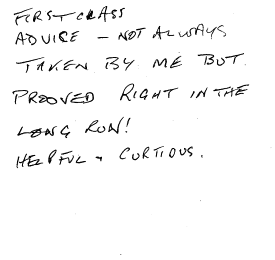 FIRST CLASS
ADVICE - NOT ALWAYS
TAKEN BY ME BUT
PROOVED RIGHT IN THE
LONG RUN!
HELPFUL + CURTIOUS.